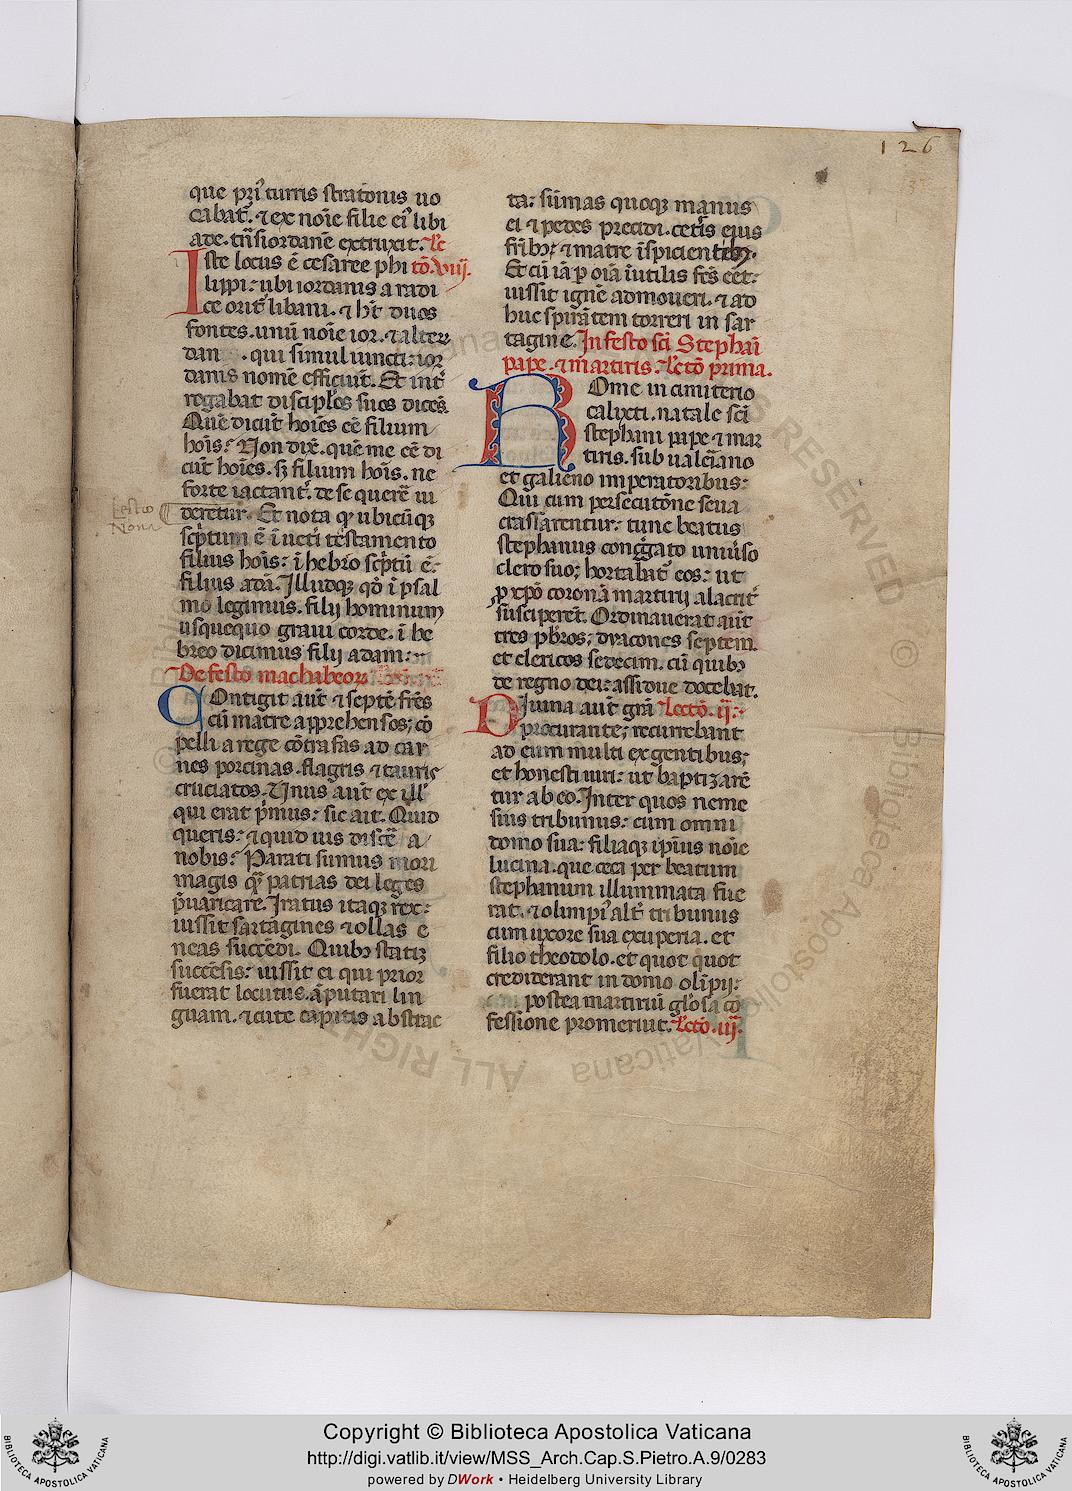 126
que pri᷒ turris stratonis uo
cabat᷑. ⁊ ex noīe filie ei᷒ libi
ade. tn̄siordanē extruxit. Le
Iste locus ē cesaree phi tō. viij.
lippi: ubi iordanis a radi
ce orit᷑ libani. ⁊ hr̄ duos
fontes. unū noīe ior. ⁊ alter
dan . qui simul iuncti: ior
danis nomē efficiūt. Et int̄
rogabat discipl̄os suos dicēs.
Quē dicūt hoīes eē filium
hoīs? Non dix̄. quē me eē di
cūt hoīes. sꝫ filium hoīs. ne
forte iactant᷑. de se querē ui
Lectio
Nona
deretur. Et nota qꝫ ubicūqꝫ
sc̄ptum ē ī uet̄i testamento
filius hoīs: ī hebr̄o sc̄ptū ē.
filius adā. Illudqꝫ qd̄ ī psal
mo legimus. filij hominum
usquequo graui corde. ī he
breo dicimus filij adam:
De festo machabeoꝝ
Contigit aut̄ ⁊ septē fr̄es
cū matre apprehensos; cō
pelli a rege cōtra fas ad car
nes porcinas. flagris ⁊ tauris
cruciatos. Unus aut̄ ex ill᷒
qui erat p̄mus: sic ait. Quid
queris: ⁊ quid uis discē̄ a
nobis? Parati sumus mori
magis qꝫ̄ patrias dei leges
p̄uaricare. Iratus itaqꝫ rex:
iussit sartagines ⁊ ollas e
neas succēdi. Quibꝫ statiꝫ
succēsis: iussit ei qui prior
fuerat locutus. āputari lin
guam. ⁊ cute capitis abstrac
ta: sūmas quoqꝫ manus
ei ⁊ pedes precidi. cet̄is eius
fr̄ibꝫ ⁊ matre īspicientibꝫ.
Et cū iā ꝑ oīa īutilis fc̄s eēt:
iussit ignē admoueri. ⁊ ad
huc spirātem torreri in sar
tagine. In festo sc̄i Stephani
pape. ⁊ martiris. Lectō prima.
Rome in cimiterio
calixti. natale sc̄i
stephani pape ⁊ mar
tiris. sub ualeriano
et galieno imperatoribus:
Qui cum persecutōne seua
crassarentur: tunc beatus
stephanus cong̃gato uniu̾so
clero suo; hortabat᷑ eos: ut
ꝓ xp̄o coronā martirij alacrit̄
susciperēt. Ordinauerat aut̄
tres pb̄ros; dyacones septem
et clericos sedecim. cū quibꝫ
de regno dei: assidue docebat.
Diuina aut̄ grā Lectō. ij.
procurante; recurrebant
ad eum multi ex gentibus;
et honesti uiri: ut baptizarē
tur ab eo. Inter quos neme
sius tribunus: cum omni
domo sua: filiaqꝫ ip̄ius noīe
lucina. que ceca per beatum
stephanum illuminata fue
rat. ⁊ olimpi᷒ alt̄ tribunus
cum uxore sua exuperia. et
filio theodolo. et quot quot
crediderant in domo olīpij:
postea martiriū gl̄osa cō
fessione promeruit. Lectō. iij.
Copyright © Biblioteca Apostolica Vaticana
http://digi.vatlib.it/view/MSS_Arch.Cap.S.Pietro.A.9/0283
powered by DWork • Heidelberg University Library
BIBLIOTECA APOSTOLICA VATICANA
BIBLIOTECA APOSTOLICA VATICANA